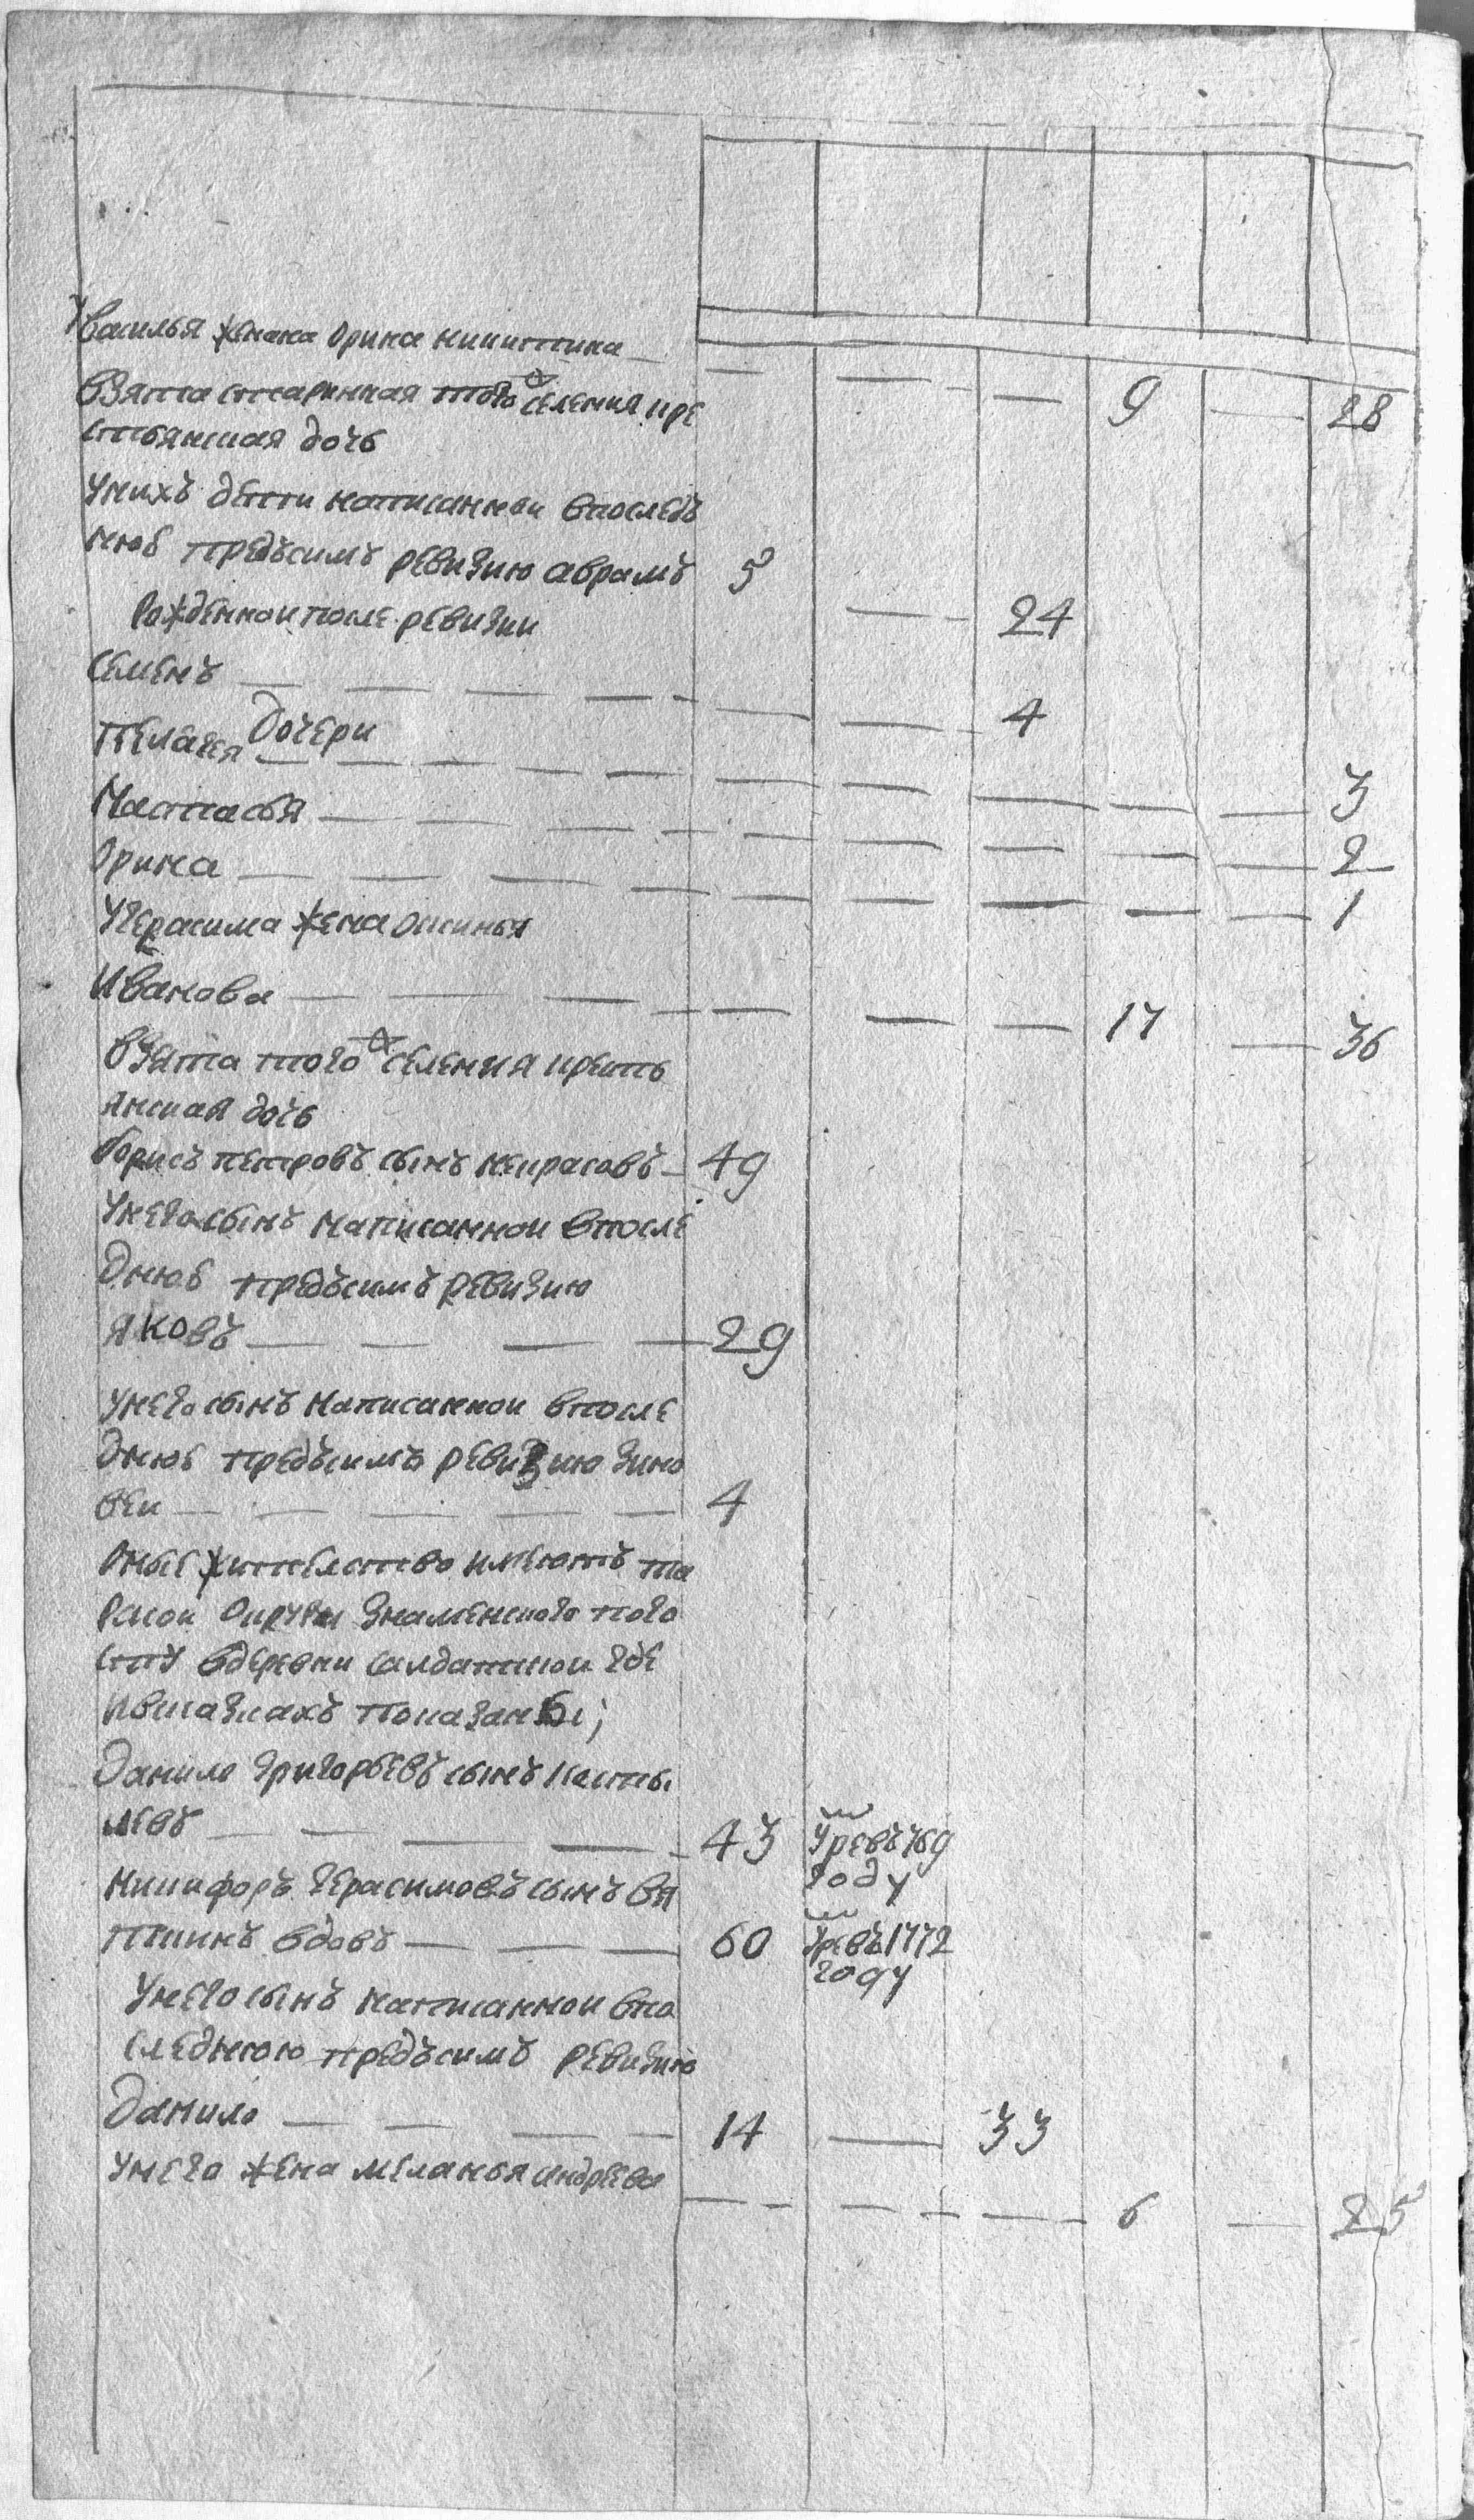 У василья жена орина никитина
взята старинная того ж селения кре — — — 9 — 28
стьянская дочь
у нихъ дети написанные в последъ
нюю предъ симъ ревизию аврамъ 5 — 24
рожденной после ревизии
семенъ — — — — — — 4
дочери
пелагея — — — — — — — — — — 3
настасья — — — — — — — — — 2
орина — — — — — — — — — 1
у герасима жена аксинья
иванова — — — — — — — 17 — 36
взята того ж селения кресть
янская дочь
борисъ петровъ сынъ некрасовъ — 49
у него сынъ написанной в после
днюю предъ симъ ревизию
яковъ — — — — 29
у него сынъ написанной в после
днюю предъ симъ ревизию зино
веи — — — — — 4
оные жительство имеютъ та
рской округи знаменского пого
сту в деревни салдатской где
и в сказкахъ показаны;
данило григорьевъ сынъ косты
левъ — — — — 43 умре въ 769 году
никифоръ герасимовъ сынъ вя
ткинъ вдовъ — — — 60 умре въ 1772 году
у него сынъ написанной в по
следнюю предъ симъ ревизию
данило — — — — 14 — 33
у него жена меланья андреева
— — — — — 6 — 25